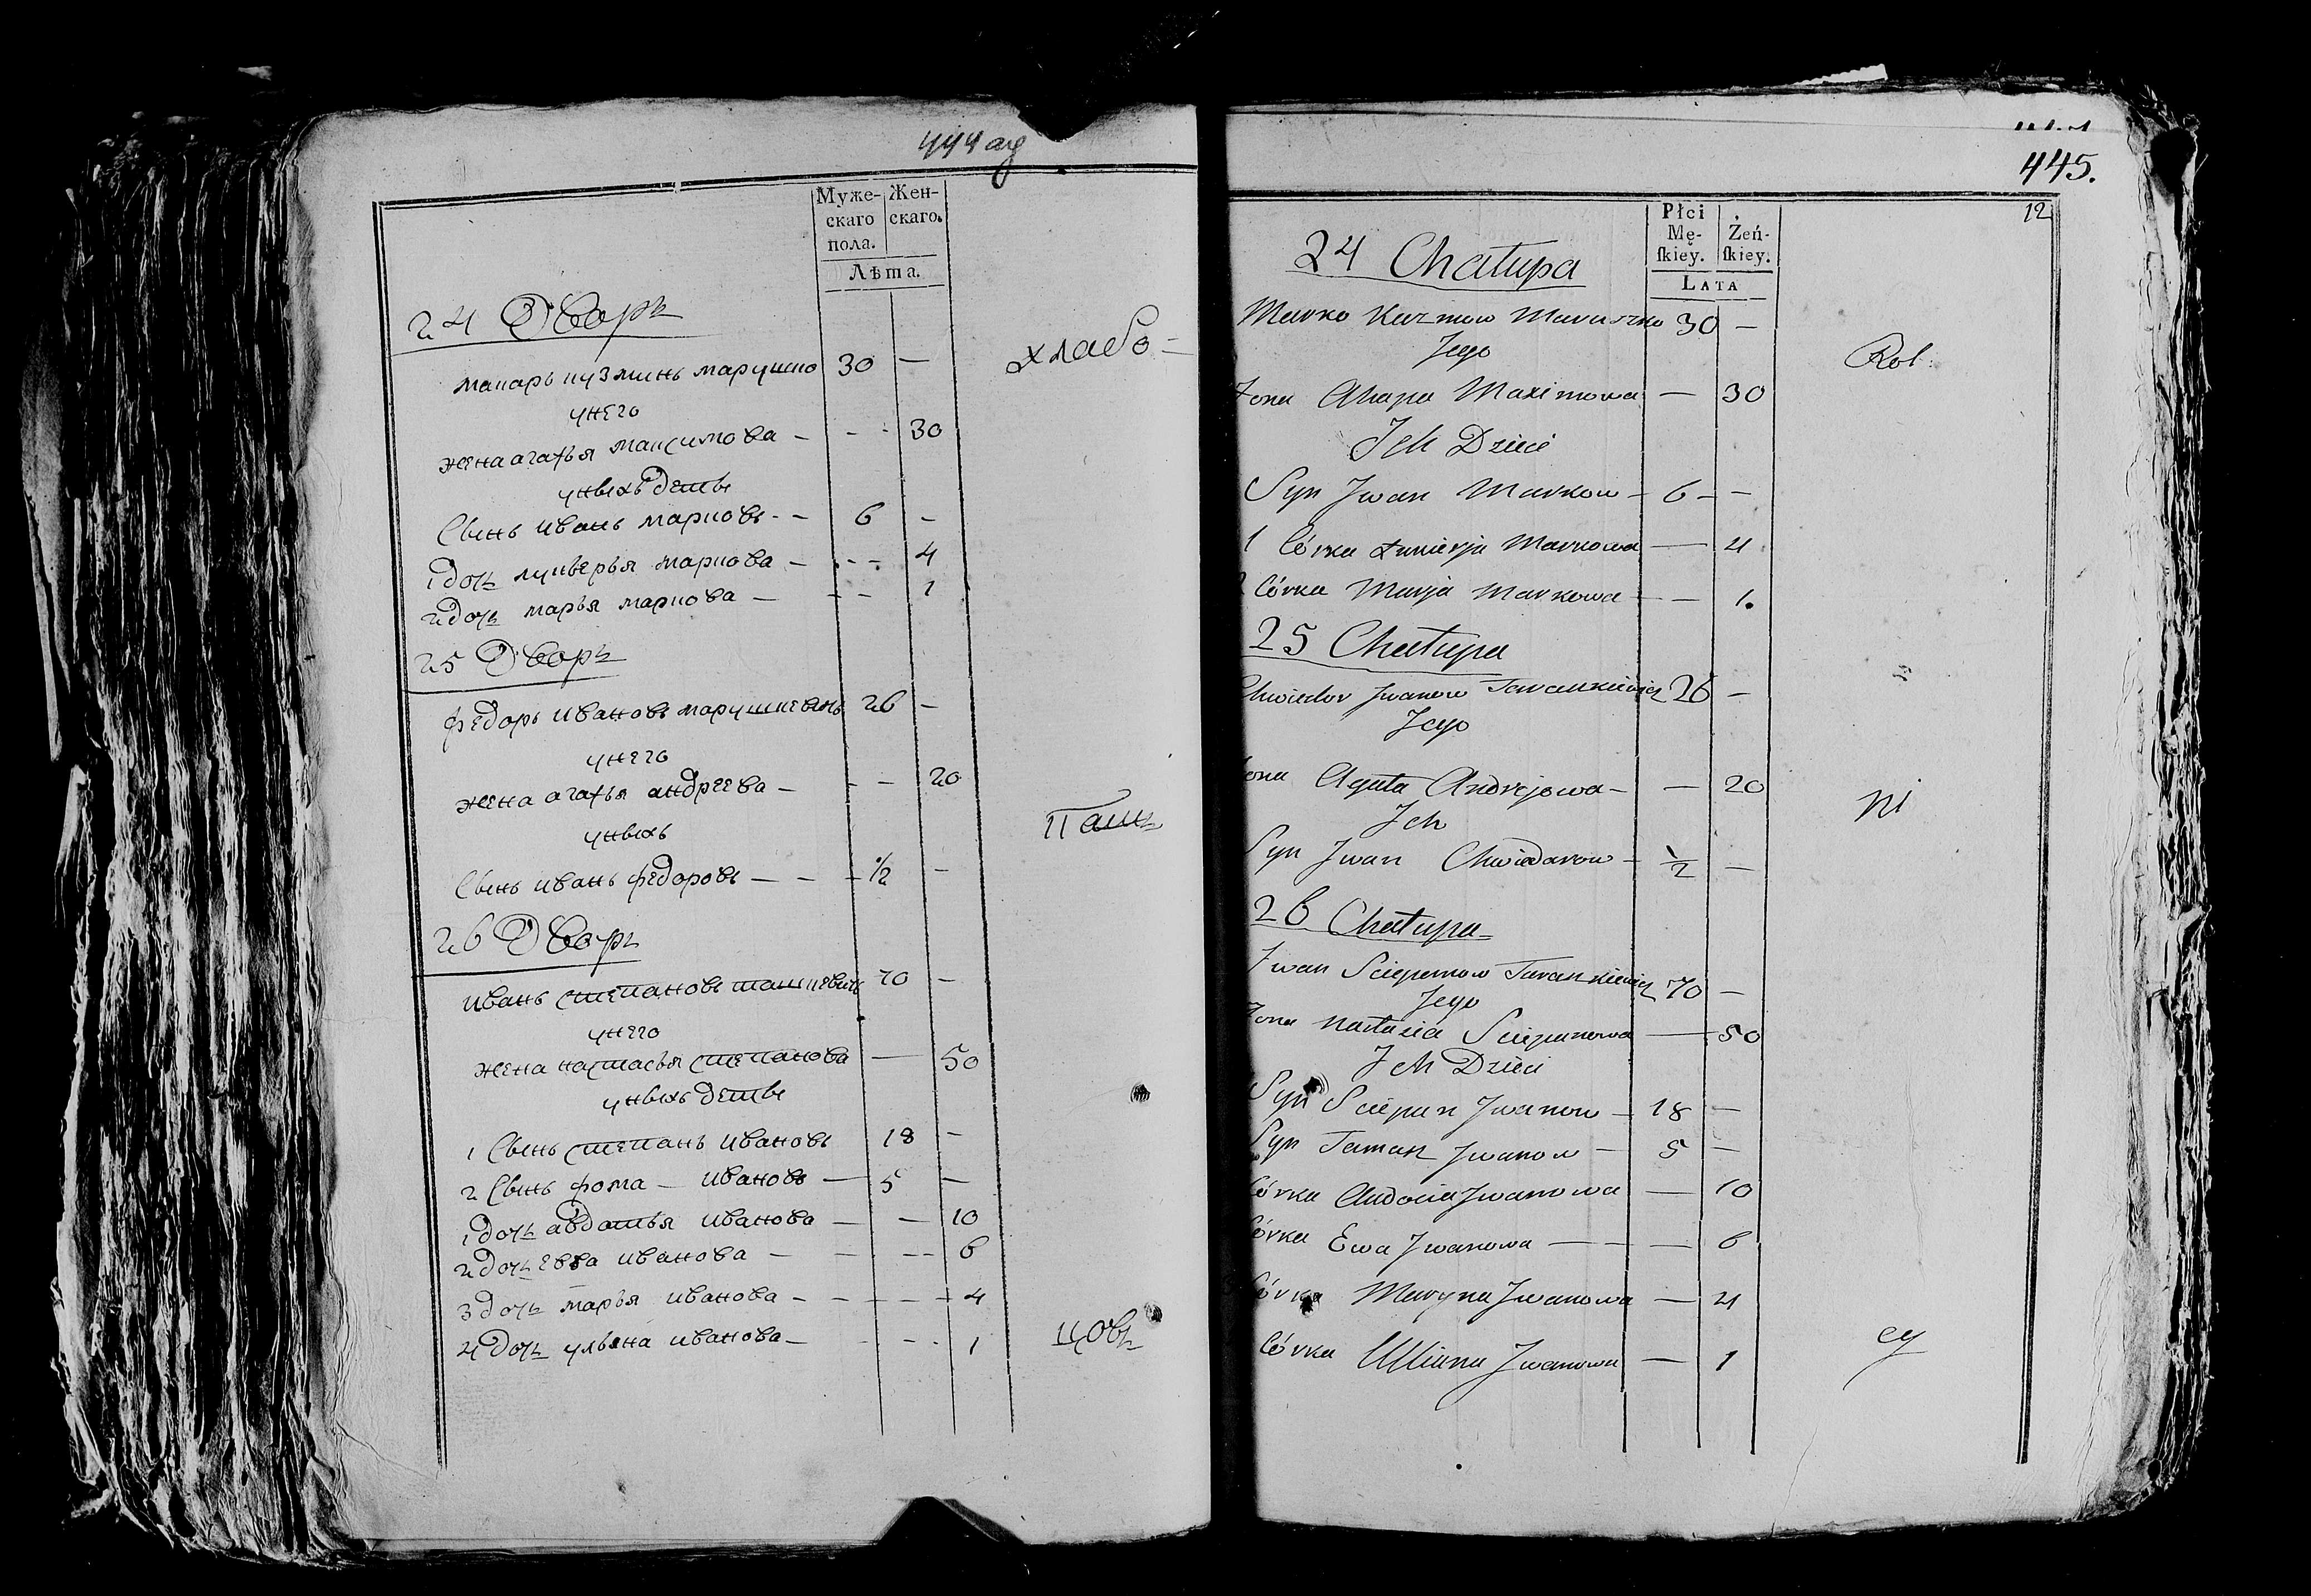 444 об
Муже-
скаго
пола.
Жен-
скаго.
Лѣта.
24 Дворъ
макаръ кузминъ марушко 30 —
унего
жена агафья максимова — - - 30
уныхъ деты
Сынъ иванъ марковъ - - 6 -
1 дочъ лукьерья маркова — - - - 4
2 дочъ марья маркова — - - 1
25 Дворъ
федоръ ивановъ 26 —
унего
жена агафья андреева — - — 20
уныхъ
Сынъ иванъ федоровъ — — — 1/2 —
26 Дворъ
иванъ степановъ 70 —
унего
жена настасья степанова — 50
уныхъ деты
1 Сынъ степанъ ивановъ 18 —
2 Сынъ фома — ивановъ — 5 —
1 дочъ авдотья иванова — — 10
2 дочъ евва иванова — — - - 6
3 дочъ марья иванова - — - — 4
4 дочъ ульяна иванова — - - - 1
хлебо-
Паш
цовъ
445.
12
Płci
Mę-
ſkiey.
Żeń-
ſkiey.
LATA
24 Chałupa
Marko Kuzmow Maruszko 30 —
Jego
Żona Ahapa Maximowa — 30
Jch Dzieci
Syn Jwan Markow — 6 — —
1 Córka Łukierja Markowa — 4
2 Córka Marja Markowa — — 1.
25 Chałupa
Chwiedor Jwanow Taraszkiewicz 26 —
Jego
Żona Agata Andrejowa — — 20
Jch
Syn Jwan Chwiedorow — 1/2 —
26 Chałupa
Jwan Sciepanow Taraszkiewicz 70 —
Jego
Żona Nastazia Sciepanowa — 50
Jch Dzieci
Syn Sciepan Jwanow — 18 —
Syn Tamasz Jwanow — 5 —
Córka Audocia Jwanowa — 10
Córka Ewa Jwanowa — — — 6
Córka Maryna Jwanowa — 4
Córka Ulliana Jwanowa — 1
Rol
ni
cy